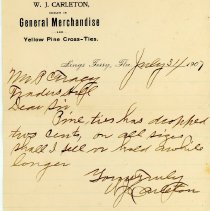 W. J. CARLETON,
DEALER IN
General Merchandise
AND
Yellow Pine Cross-Ties.
Kings Ferry, Fla July 31 1907
Mr P
Dear Sir
Pine ties has dropped
two cents on all sizes
shall I sell or hold awhile
longer
Yours Truly
W J Carleton